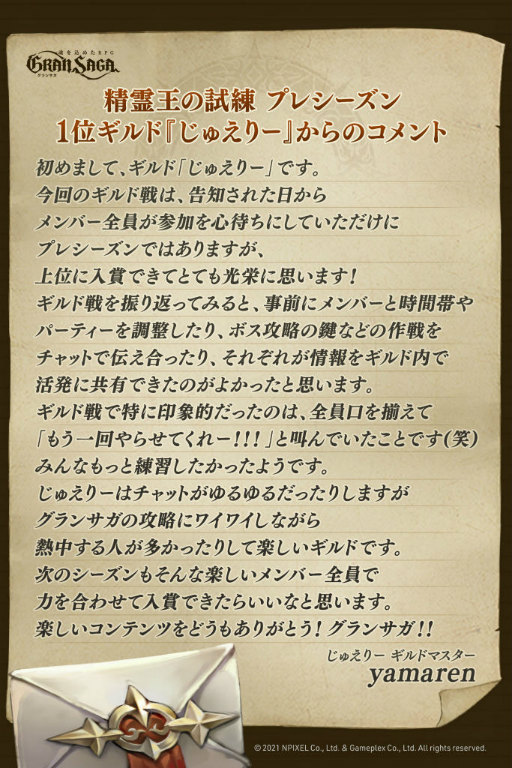 魂を込めたRPG
GRAN SAGA
グランサガ
精霊王の試練 プレシーズン
1位ギルド『じゅえりー』からのコメント
初めまして、ギルド「じゅえりー」です。
今回のギルド戦は、告知された日から
メンバー全員が参加を心待ちにしていただけに
プレシーズンではありますが、
上位に入賞できてとても光栄に思います!
ギルド戦を振り返ってみると、事前にメンバーと時間帯や
パーティーを調整したり、ボス攻略の鍵などの作戦を
チャットで伝え合ったり、それぞれが情報をギルド内で
活発に共有できたのがよかったと思います。
ギルド戦で特に印象的だったのは、全員口を揃えて
「もう一回やらせてくれー!!!」と叫んでいたことです(笑)
みんなもっと練習したかったようです。
じゅえりーはチャットがゆるゆるだったりしますが
グランサガの攻略にワイワイしながら
熱中する人が多かったりして楽しいギルドです。
次のシーズンもそんな楽しいメンバー全員で
力を合わせて入賞できたらいいなと思います。
楽しいコンテンツをどうもありがとう! グランサガ!!
じゅえりー ギルドマスター
yamaren
© 2021 NPIXEL Co., Ltd. & Gameplex Co., Ltd. All rights reserved.